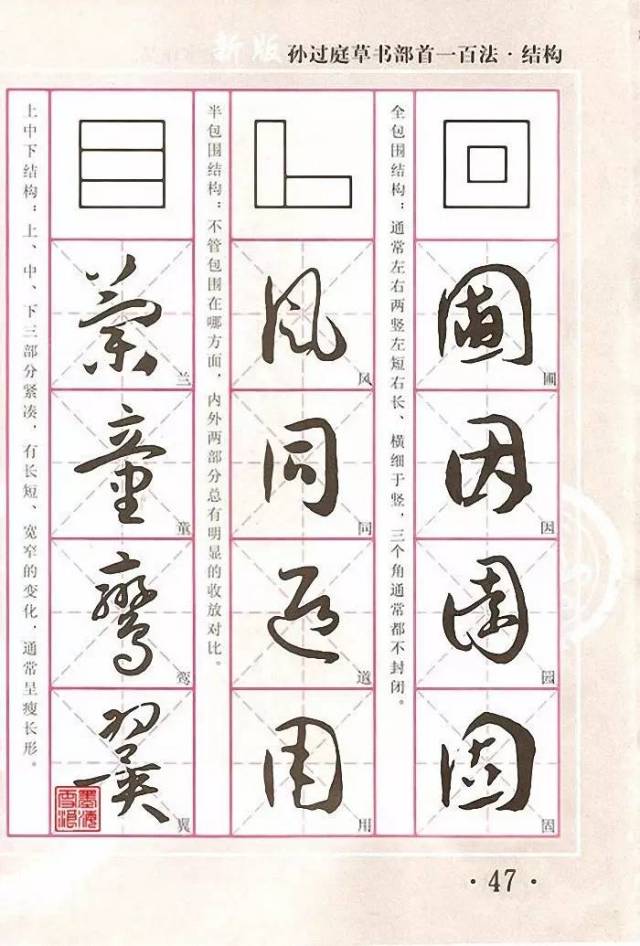 新版 孙过庭草书部首一百法·结构
全包围结构：通常左右两竖左短右长、横细于竖，三个角通常都不封闭。
圃
圃
因
因
園
园
固
固
半包围结构：不管包围在哪方面，内外两部分总有明显的收放对比。
風
风
同
同
道
道
用
用
上中下结构：上、中、下三部分紧凑，有长短、宽窄的变化，通常呈瘦长形。
蘭
兰
童
童
鸞
鸾
翼
翼
·47·